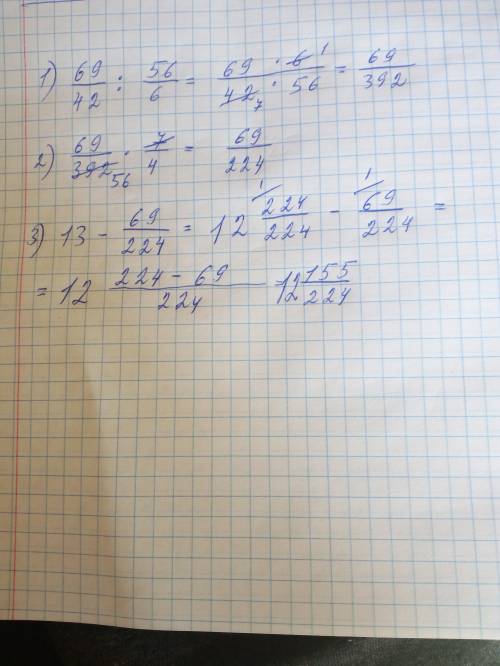 1) 69/42 : 56/6 = 69 · 6 1/42 7 · 56 = 69/392
2) 69/392 56 · 7/4 = 69/224
3) 13 - 69/224 = 12 224/224 1/ - 69/224 1/ =
= 12 224 - 69/224 12 155/224